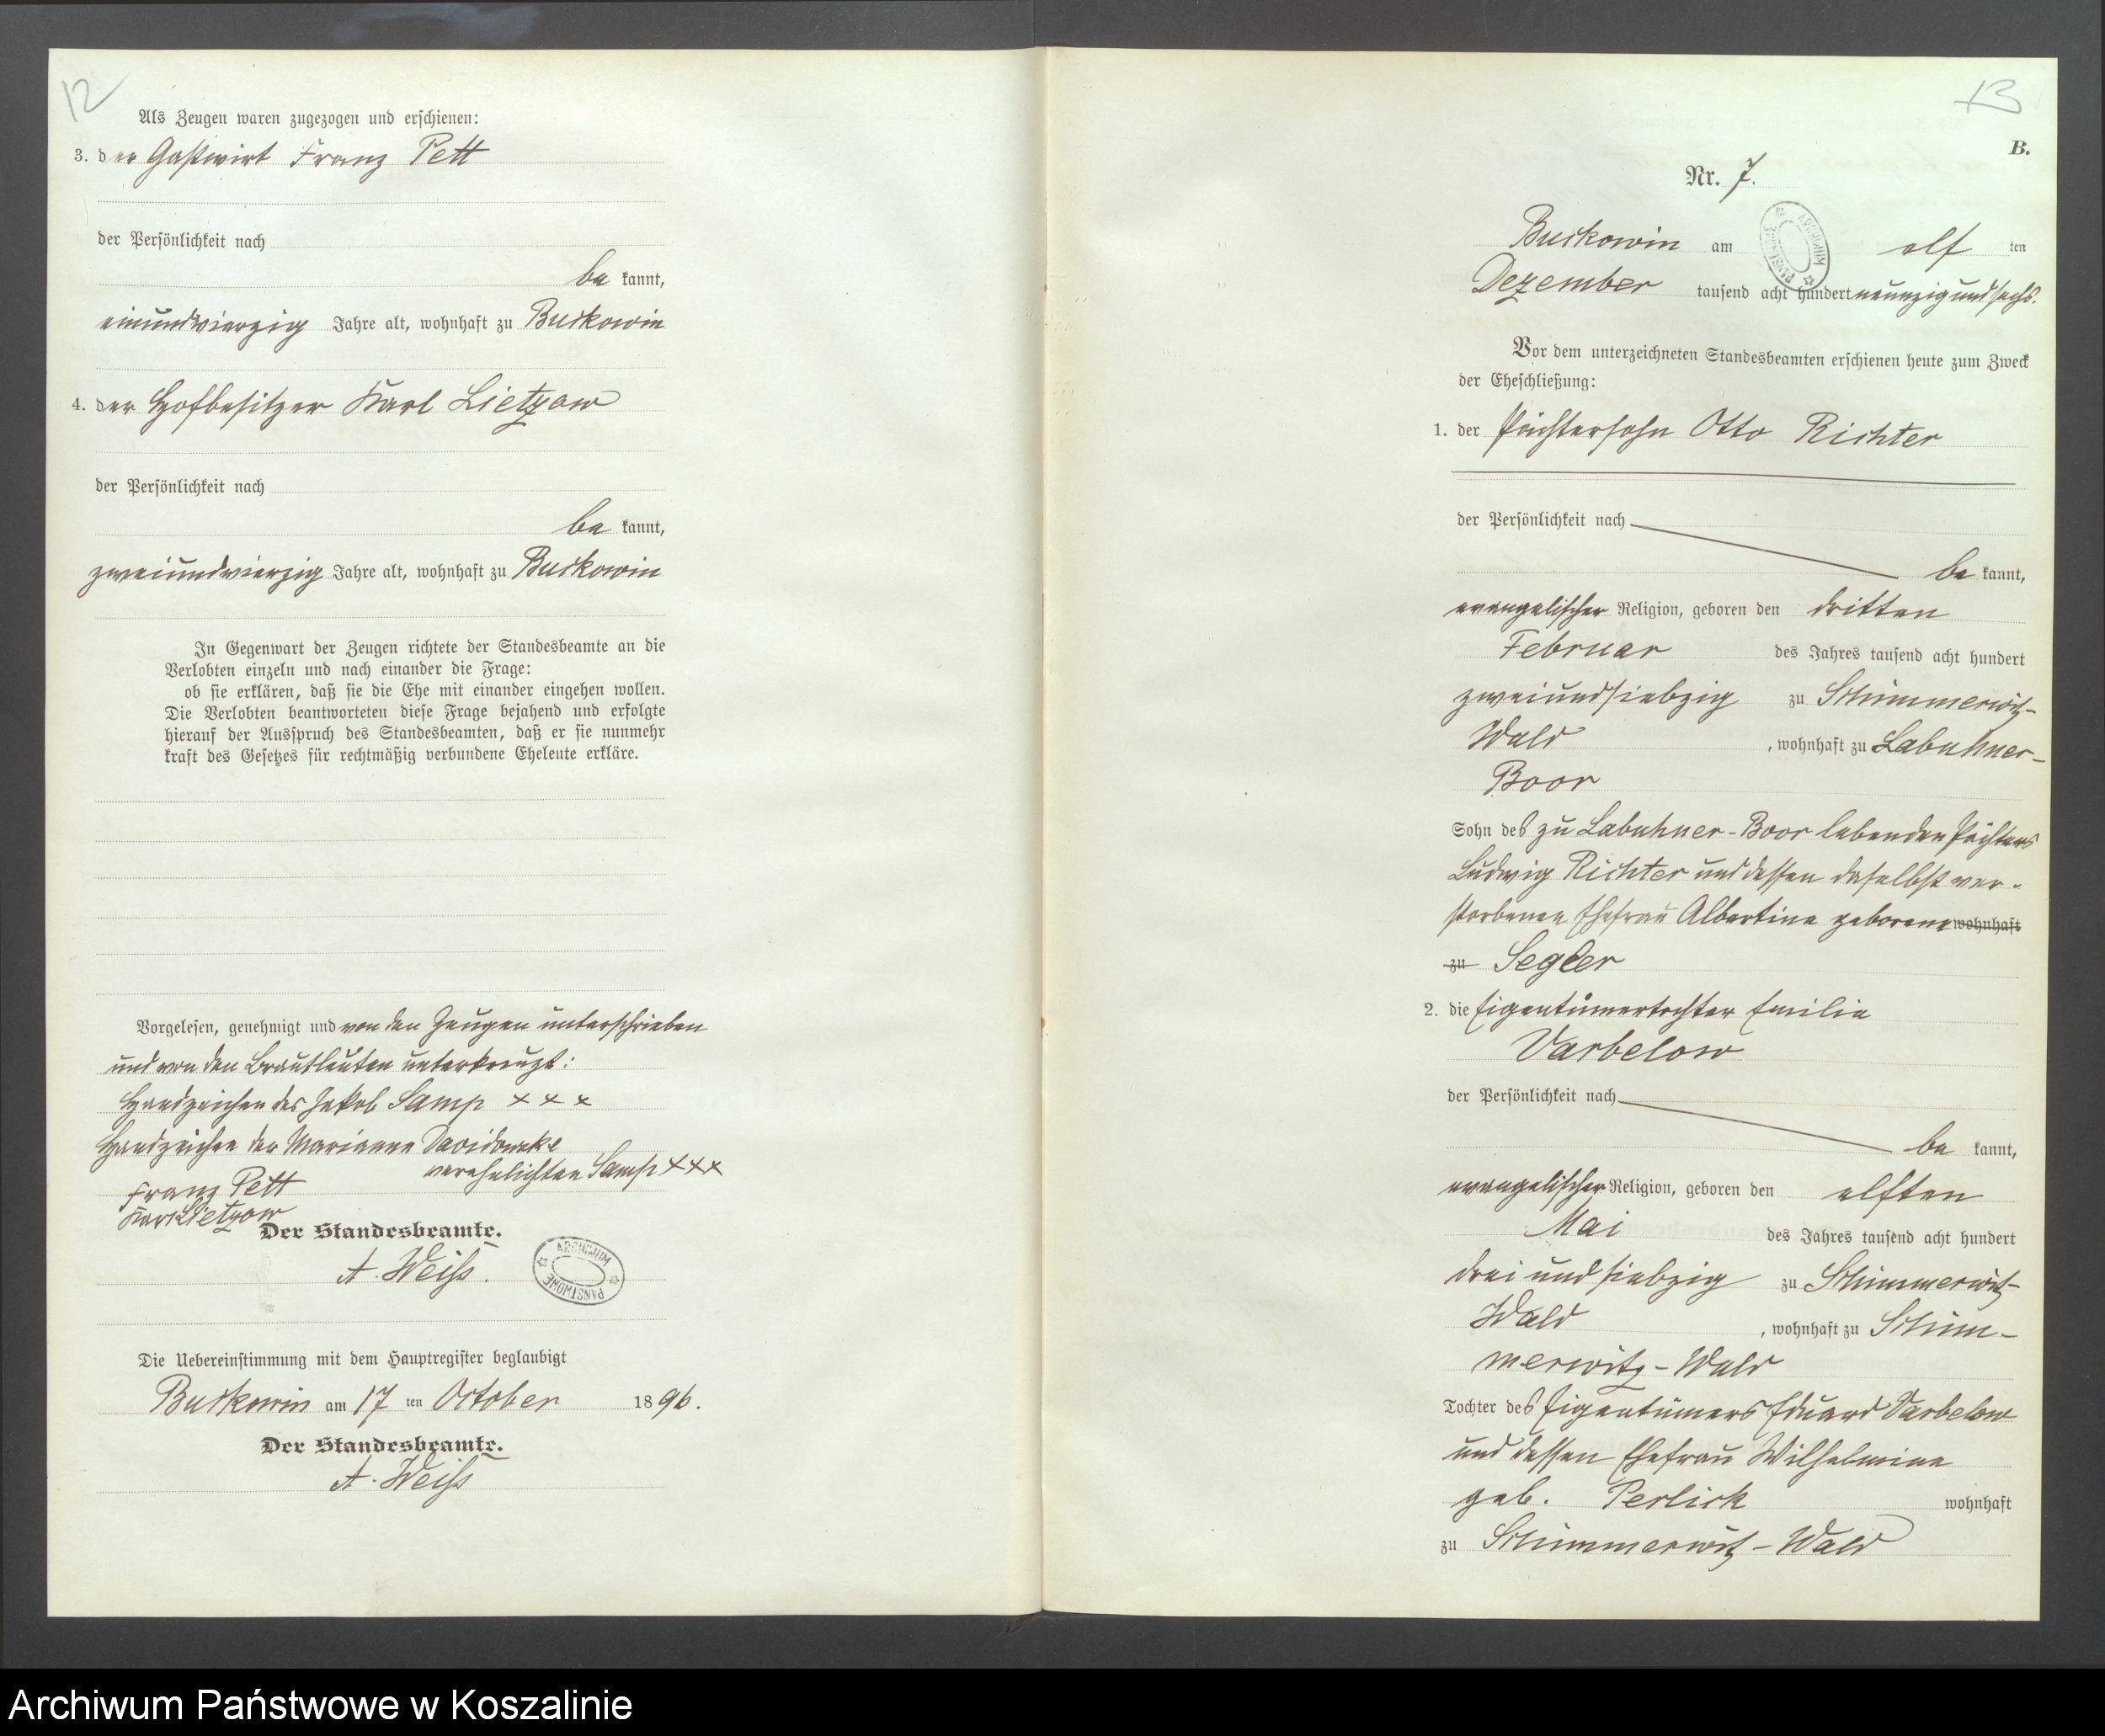 12
Als Zeugen waren zugezogen und erschienen:
3. der Gastwirt Franz Pett
der Persönlichkeit nach
be kannt,
einundvierzig Jahre alt, wohnhaft zu Buckowin
4. der Hofbesitzer Karl Lietzow
der Persönlichkeit nach
be kannt,
zweiundvierzig Jahre alt, wohnhaft zu Buckowin
In Gegenwart der Zeugen richtete der Standesbeamte an die
Verlobten einzeln und nach einander die Frage:
ob sie erklären, daß sie die Ehe mit einander eingehen wollen.
Die Verlobten beantworteten diese Frage bejahend und erfolgte
hierauf der Ausspruch des Standesbeamten, daß er sie nunmehr
kraft des Gesetzes für rechtmäßig verbundene Eheleute erkläre.
Vorgelesen, genehmigt und von den Zeugen unterschrieben
und von den Brautleuten unterkreuzt:
Handzeichen des Jakob Samp xxx
Handzeichen der Marianne
verehelichten Samp xxx
Franz Pett
Karl Lietzow
Der Standesbeamte.
A. Weiß.
ARCHIWUM PAŃSTWOWE
Die Uebereinstimmung mit dem Hauptregister beglaubigt
Buckowin am 17 ten October 1896.
Der Standesbeamte.
A. Weiß
13
B.
Nr. 7.
ARCHIWUM PAŃSTWOWE
Buckowin am elf ten
Dezember tausend acht hundert neunzig und sechs.
Vor dem unterzeichneten Standesbeamten erschienen heute zum Zweck
der Eheschließung:
1. der Pächtersohn Otto Richter
der Persönlichkeit nach
be kannt,
evangelischer Religion, geboren den dritten
Februar des Jahres tausend acht hundert
zweiundsiebzig zu Schimmerwitz-
Wald, wohnhaft zu Labuhner-
Boor
Sohn des zu Labuhner-Boor lebenden Pächters
Ludwig Richter und dessen daselbst ver-
storbenen Ehefrau Albertine geborene wohnhaft
zu Segler
2. die Eigentümertochter Emilie
Varbelow
der Persönlichkeit nach
be kannt,
evangelischer Religion, geboren den elften
Mai des Jahres tausend acht hundert
drei und siebzig zu Schimmerwitz-
Wald, wohnhaft zu Schim-
merwitz-Wald
Tochter des Eigentümers Eduard Varbelow
und dessen Ehefrau Wilhelmine
geb. Perlick wohnhaft
zu Schimmerwitz-Wald
Archiwum Państwowe w Koszalinie